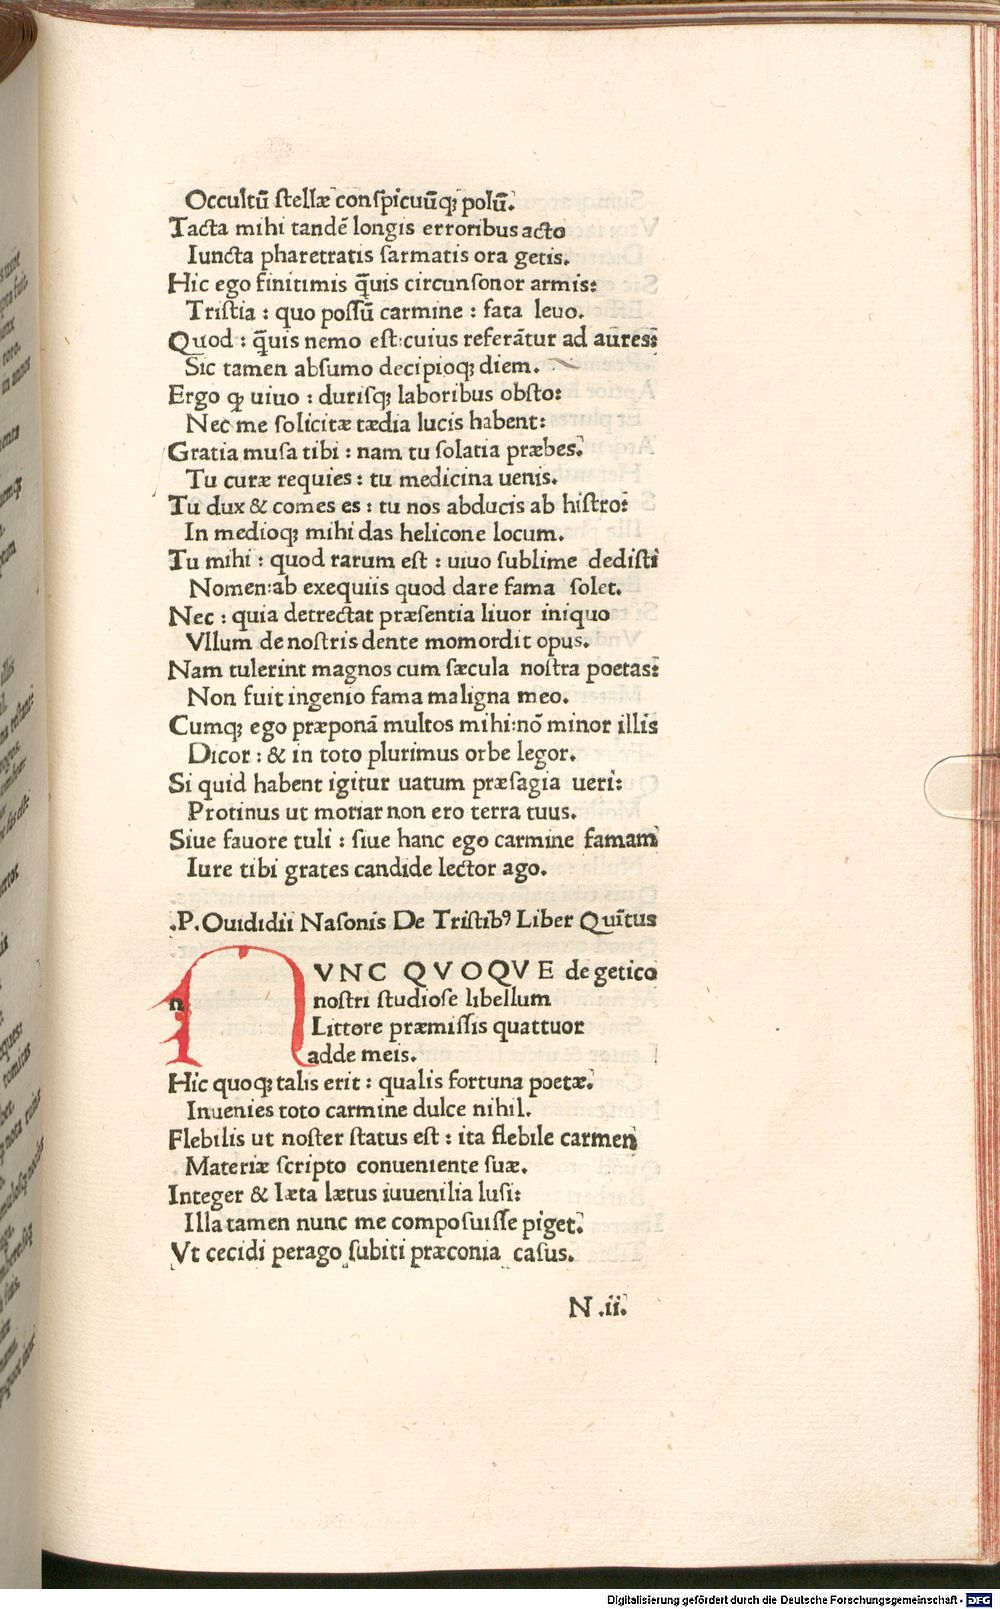 Occultū stellæ conspicuūq; polū.
Tacta mihi tandē longis erroribus acto
Iuncta pharetratis sarmatis ora getis.
Hic ego finitimis q̄uis circunsonor armis:
Tristia : quo possū carmine : fata leuo.
Quod : q̄uis nemo est:cuius referātur ad aūres:
Sic tamen absumo decipioq; diem.
Ergo ꝙ uiuo : durisq; laboribus obsto:
Nec me solicitæ tædia lucis habent:
Gratia musa tibi : nam tu solatia præbes.
Tu curæ requies : tu medicina uenis.
Tu dux & comes es : tu nos abducis ab histro:
In medioq; mihi das helicone locum.
Tu mihi : quod rarum est : uiuo sublime dedisti
Nomen:ab exequiis quod dare fama solet.
Nec : quia detrectat præsentia liuor iniquo
Vllum de nostris dente momordit opus.
Nam tulerint magnos cum sæcula nostra poetas:
Non fuit ingenio fama maligna meo.
Cumq; ego præponā multos mihi:nō minor illis
Dicor : & in toto plurimus orbe legor.
Si quid habent igitur uatum præsagia ueri:
Protinus ut moriar non ero terra tuus.
Siue fauore tuli : siue hanc ego carmine famam
Iure tibi grates candide lector ago.
.P. Ouididii Nasonis De Tristibꝰ Liber Quītus
n VNC QVOQVE de getico
nostri studiose libellum
Littore præmissis quattuor
adde meis.
Hic quoq; talis erit : qualis fortuna poetæ.
Inuenies toto carmine dulce nihil.
Flebilis ut noster status est : ita flebile carmen
Materiæ scripto conueniente suæ.
Integer & læta lætus iuuenilia lusi:
Illa tamen nunc me composuisse piget.
Vt cecidi perago subiti præconia casus.
N .ii.
Digitalisierung gefördert durch die Deutsche Forschungsgemeinschaft - DFG